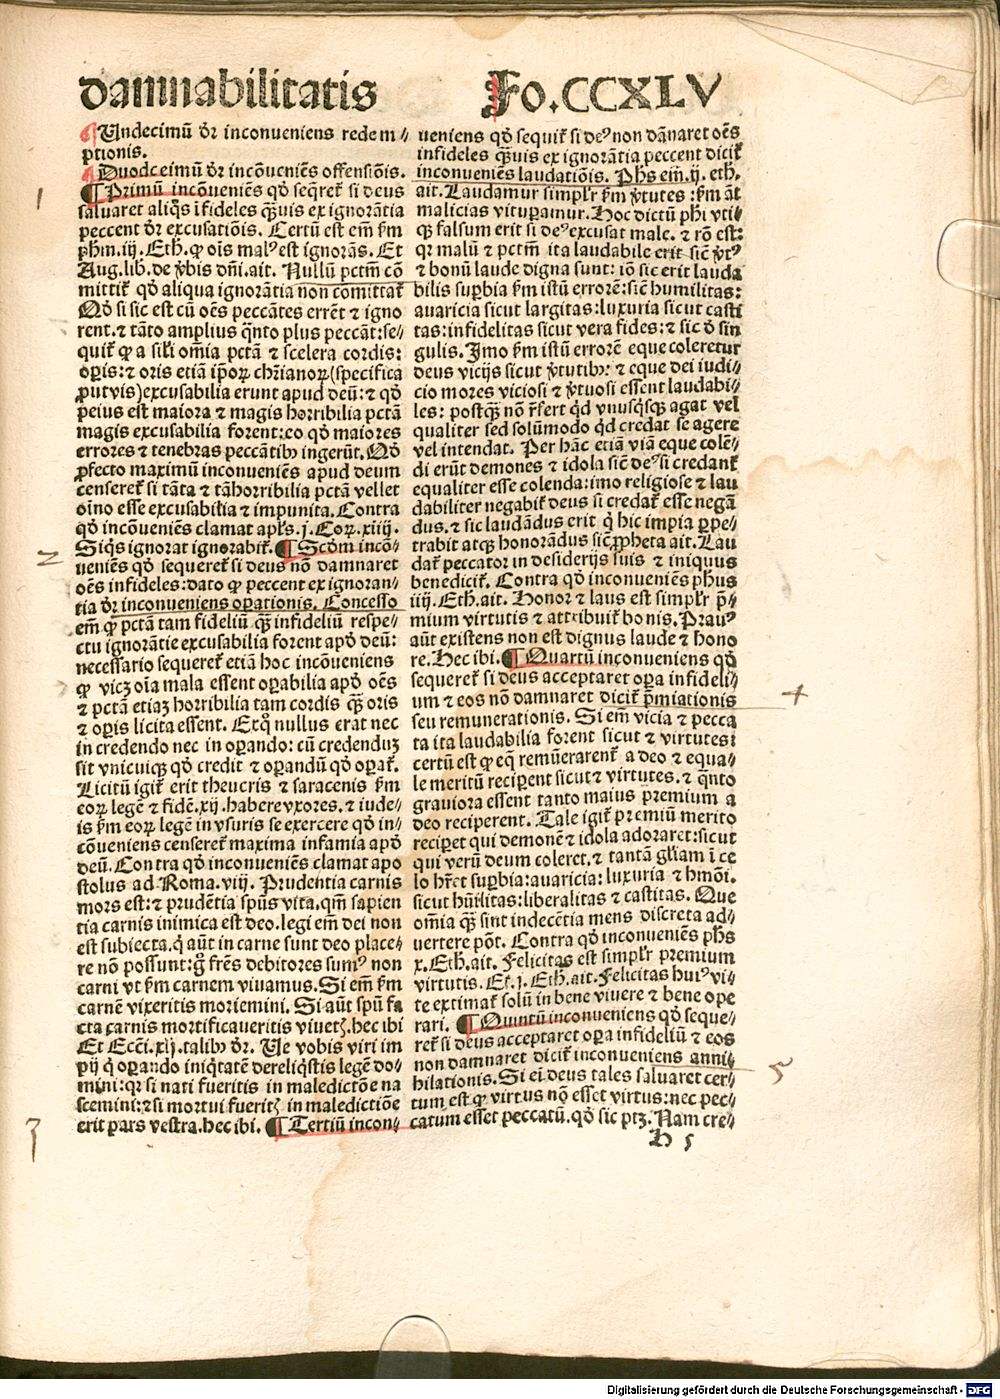 damnabilitatis Fo.CCXLV
¶Undecimū dr̄ inconueniens redem⸗
ptionis.
¶Duodceimū dr̄ incōueniēs offensiōis.
1
¶Primū incōueniēs qđ seq̄ret̄ si deus
saluaret aliq̄s īfideles q̄ȝuis ex ignorātia
peccent dr̄ excusatiōis. Certū est em̄ ẜm
phm̄.iij. Eth. ꝙ oīs malꝰ est ignorās. Et
Aug.lib.de v̄bis dn̄i.ait. Nullū pctm̄ cō
mittit̄ qđ aliqua ignorātia non comittat̄
Qđ si sic est cū oēs peccātes errēt ⁊ igno
rent.⁊ tāto amplius q̄nto plus peccāt:se⸗
quit̄ ꝙ a sil̄i om̄ia pctā ⁊ scelera cordis:
oꝑis:⁊ oris etiā ip̄oꝝ chr̄ianoꝝ(specifica
ꝓut vis)excusabilia erunt apud deū:⁊ qđ
peius est maiora ⁊ magis horribilia pctā
magis excusabilia forent:eo qđ maiores
errores ⁊ tenebras peccātibꝫ ingerūt. Qđ
ꝓfecto maximū inconueniēs apud deum
censeret̄ si tāta ⁊ tā horribilia pctā vellet
oīno esse excusabilia ⁊ impunita. Contra
qđ incōueniēs clamat apl̄s.j.Coꝝ.xiiij.
Siq̄s ignorat ignorabit̄. ¶Scđm incō⸗
2
ueniēs qđ sequeret̄ si deus nō damnaret
oēs infideles:dato ꝙ peccent ex ignoran⸗
tia dr̄ inconueniens oꝑationis. Concesso
em̄ ꝙ pctā tam fideliū q̄ȝ infideliū respe⸗
ctu ignorātie excusabilia forent apđ deū:
necessario sequeret̄ etiā hoc incōueniens
ꝙ vicꝫ oīa mala essent oꝑabilia apđ oēs
⁊ pctā etiaȝ horribilia tam cordis q̄ȝ oris
⁊ oꝑis licita essent. Ex q̊ nullus erat nec
in credendo nec in oꝑando: cū credenduȝ
sit vnicuiqꝫ qđ credit ⁊ oꝑandū qđ oꝑat̄.
Licitū igit̄ erit theucris ⁊ saracenis ẜm
eoꝝ legē ⁊ fidē.xij.habere vxores.⁊ iude⸗
is ẜm eoꝝ legē in vsuris se exercere qđ in⸗
cōueniens censeret̄ maxima infamia apđ
deū. Contra qđ inconueniēs clamat apo
stolus ad Roma.viij. Prudentia carnis
mors est:⁊ prudētia spūs vita.qm̄ sapien
tia carnis inimica est deo.legi em̄ dei non
est subiecta.q̄ aūt in carne sunt deo place⸗
re nō possunt:g̊ fr̄es debitores sumꝰ non
carni vt ẜm carnem viuamus. Si em̄ ẜm
carnē vixeritis moriemini. Si aūt spū fa
cta carnis mortificaueritis viuetꝭ.hec ibi
Et Ecc̄i.xlj.talibꝫ dr̄. Ue vobis viri im
pij q̄ oꝑando iniq̄tatē dereliq̄stis legē do⸗
mini:qꝛ si nati fueritis in maledictōe na
scemini:⁊ si mortui fueritꝭ in maledictiōe
erit pars vestra.hec ibi. ¶Tertiū incon⸗
3
ueniens qđ sequit̄ si deꝰ non dānaret oēs
infideles q̄ȝuis ex ignorātia peccent dicit̄
inconueniēs laudatiōis. Phs em̄.ij. eth.
ait. Laudamur simpl̄r ẜm v̄tutes :ẜm āt
malicias vituꝑamur. Hoc dictū phi vti⸗
qȝ falsum erit si deꝰ excusat male. ⁊ rō est:
qꝛ malū ⁊ pctm̄ ita laudabile erit sic̄ v̄tꝰ
⁊ bonū laude digna sunt: iō sic erit lauda
bilis suꝑbia ẜm istū errorē: sic̄ humilitas:
auaricia sicut largitas:luxuria sicut casti
tas:infidelitas sicut vera fides:⁊ sic đ sin
gulis. Imo ẜm istū errorē eque coleretur
deus vicijs sicut v̄tutibꝫ: ⁊ eque dei iudi⸗
cio mores viciosi ⁊ v̄tuosi essent laudabi⸗
les: postq̄ȝ nō r̄fert q̄d vnusq̄sqȝ agat vel
qualiter sed solūmodo q̄d credat se agere
vel intendat. Per hāc etiā viā eque colē⸗
di erūt demones ⁊ idola sic̄ deꝰ si credant̄
equaliter esse colenda:imo religiose ⁊ lau
dabiliter negabit̄ deus si credat̄ esse negā
dus.⁊ sic laudādus erit q̄ hic impia ꝑpe⸗
trabit atqꝫ honorādus sic̄ ꝓpheta ait. Lau
dat̄ peccator in desiderijs suis ⁊ iniquus
benedicit̄. Contra qđ inconueniēs phus
iiij. Eth.ait. Honor ⁊ laus est simpl̄r p̄⸗
mium virtutis ⁊ attribuit̄ bonis. Prauꝰ
aūt existens non est dignus laude ⁊ hono
re. Hec ibi. ¶Quartū inconueniens qđ
sequeret̄ si deus acceptaret oꝑa infideli⸗
um ⁊ eos nō damnaret dicit̄ p̄miationis
4
seu remunerationis. Si em̄ vicia ⁊ pecca
ta ita laudabilia forent sicut ⁊ virtutes:
certū est ꝙ eq̄ remūerarent̄ a deo ⁊ equa⸗
le meritū reciꝑent sicut ⁊ virtutes.⁊ q̄nto
grauiora essent tanto maius premium a
deo reciperent. Tale igit̄ premiū merito
reciꝑet qui demonē ⁊ idola adoraret:sicut
qui verū deum coleret.⁊ tantā gl̄iam ī ce
lo hr̄et suꝑbia:auaricia: luxuria ⁊ hmōi.
sicut hūilitas:liberalitas ⁊ castitas. Que
om̄ia q̄ȝ sint indecētia mens discreta ad⸗
uertere pōt. Contra qđ inconueniēs phs
x.Eth.ait. Felicitas est simpl̄r premium
virtutis. Et.j. Eth.ait.Felicitas huiꝰ vi⸗
te extimat̄ solū in bene viuere ⁊ bene ope
rari. ¶Quintū inconueniens qđ seque⸗
ret̄ si deus acceptaret oꝑa infideliū ⁊ eos
non damnaret dicit̄ inconueniens anni⸗
5
hilationis. Si ei deus tales saluaret cer⸗
tum est ꝙ virtus nō esset virtus:nec pec⸗
catum esset peccatū.qđ sic ptꝫ. Nam cre⸗
H 5
Digitalisierung gefördert durch die Deutsche Forschungsgemeinschaft - DFG